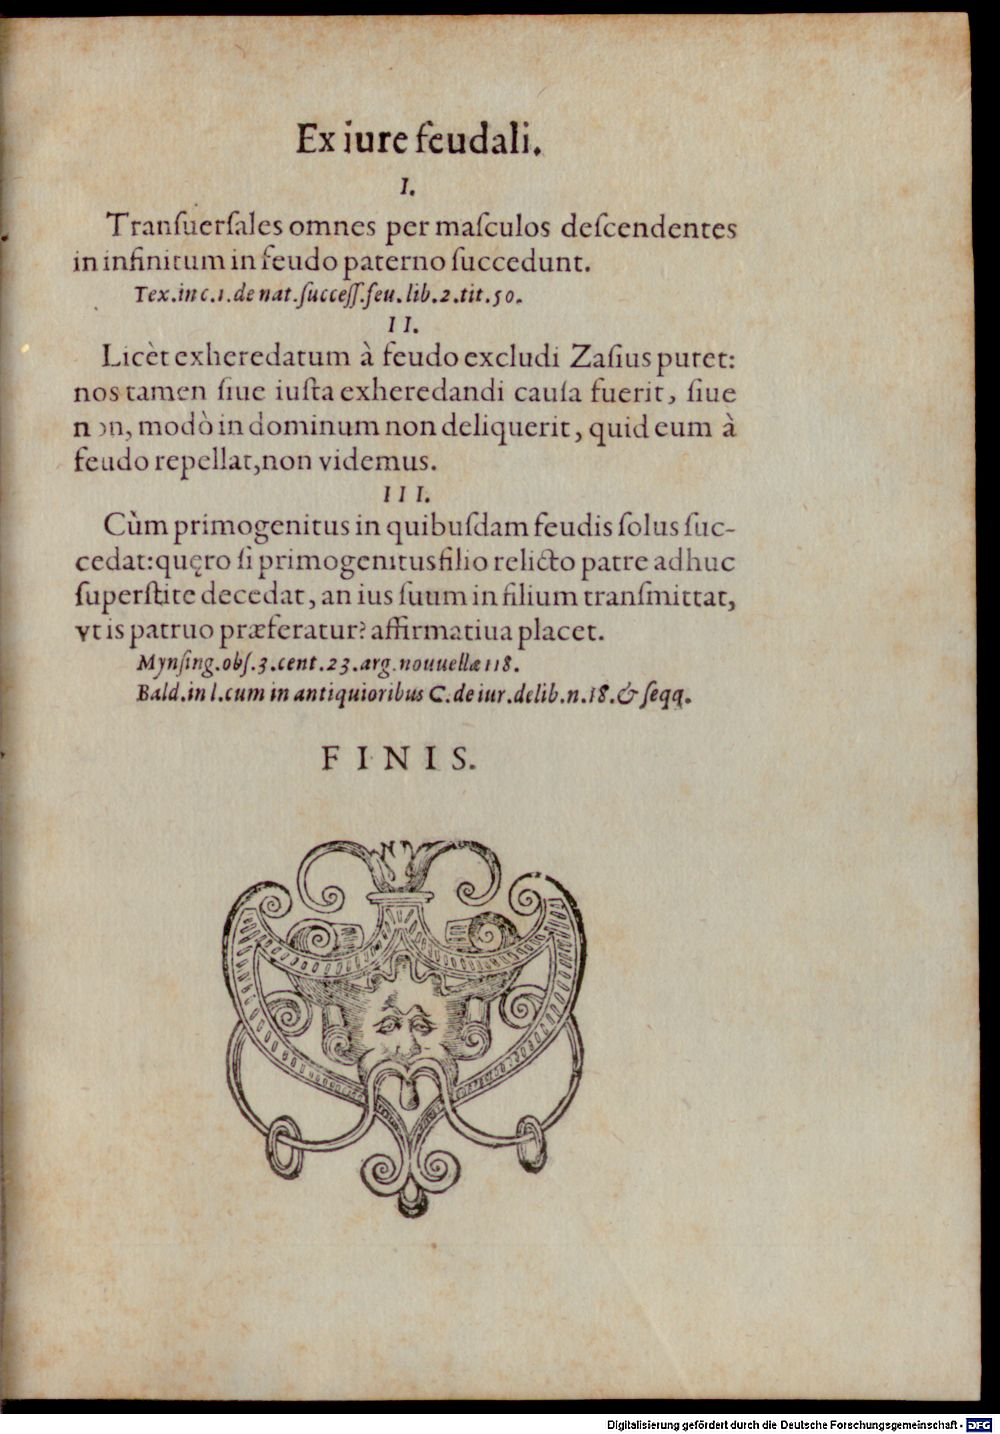 Ex iure feudali.
I.
Tranſuerſales omnes per maſculos deſcendentes
in infinitum in feudo paterno ſuccedunt.
Tex. in c. 1. de nat. ſucceſſ. feu. lib. 2. tit. 50.
II.
Licèt exheredatum à feudo excludi Zaſius putet:
nos tamen ſiue iuſta exheredandi cauſa fuerit, ſiue
non, modò in dominum non deliquerit, quid eum à
feudo repellat, non videmus.
III.
Cùm primogenitus in quibuſdam feudis ſolus ſuc-
cedat: quęro ſi primogenitus filio relicto patre adhuc
ſuperſtite decedat, an ius ſuum in filium tranſmittat,
vt is patruo præferatur? affirmatiua placet.
Mynſing. obſ. 3. cent. 23. arg. nouuellæ 118.
Bald. in l. cum in antiquioribus C. de iur. delib. n. 18. & ſeqq.
FINIS.
Digitalisierung gefördert durch die Deutsche Forschungsgemeinschaft - DFG